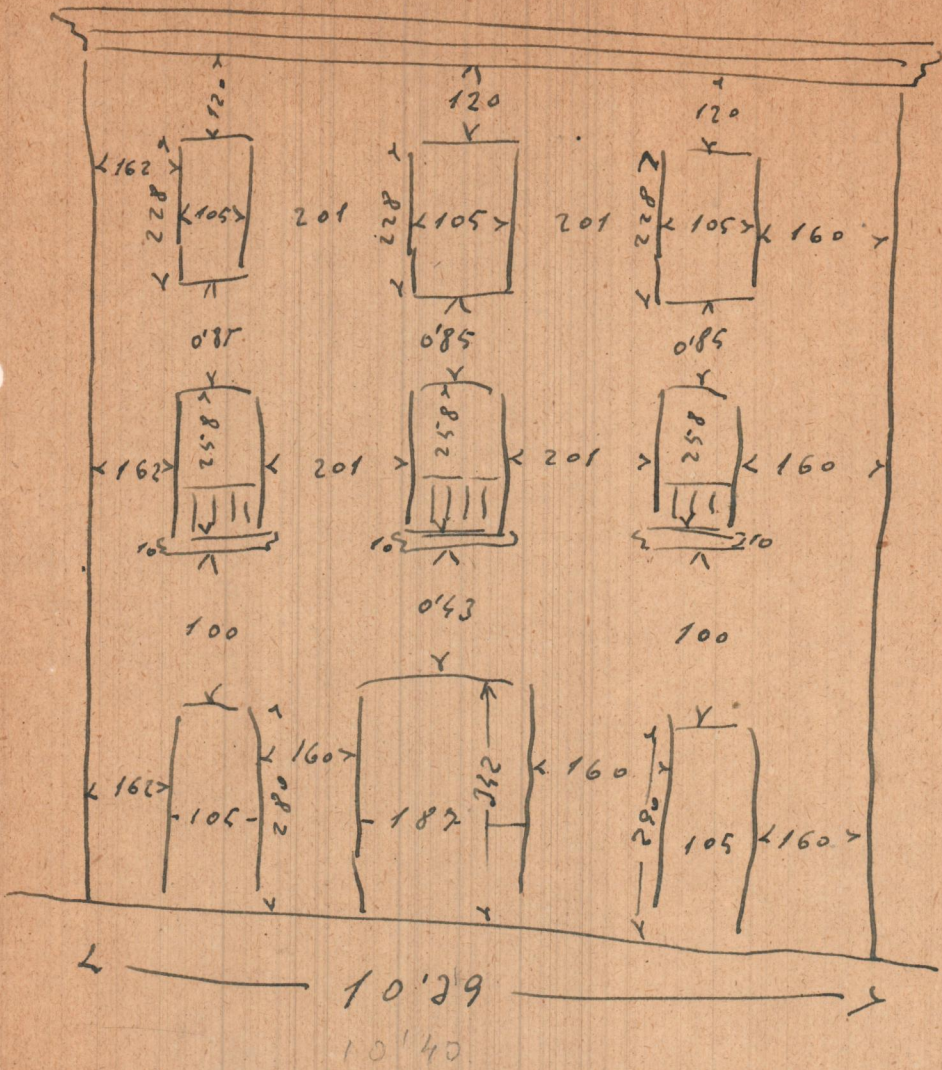 120 120 120
162 228 105 201 228 105 201 228 105 160
0'85 0'85 0'85
162 258 201 258 201 258 160
10 10 10
0'43
100 100
162 105 280 160 187 342 160 290 105 160
10'39
10'40